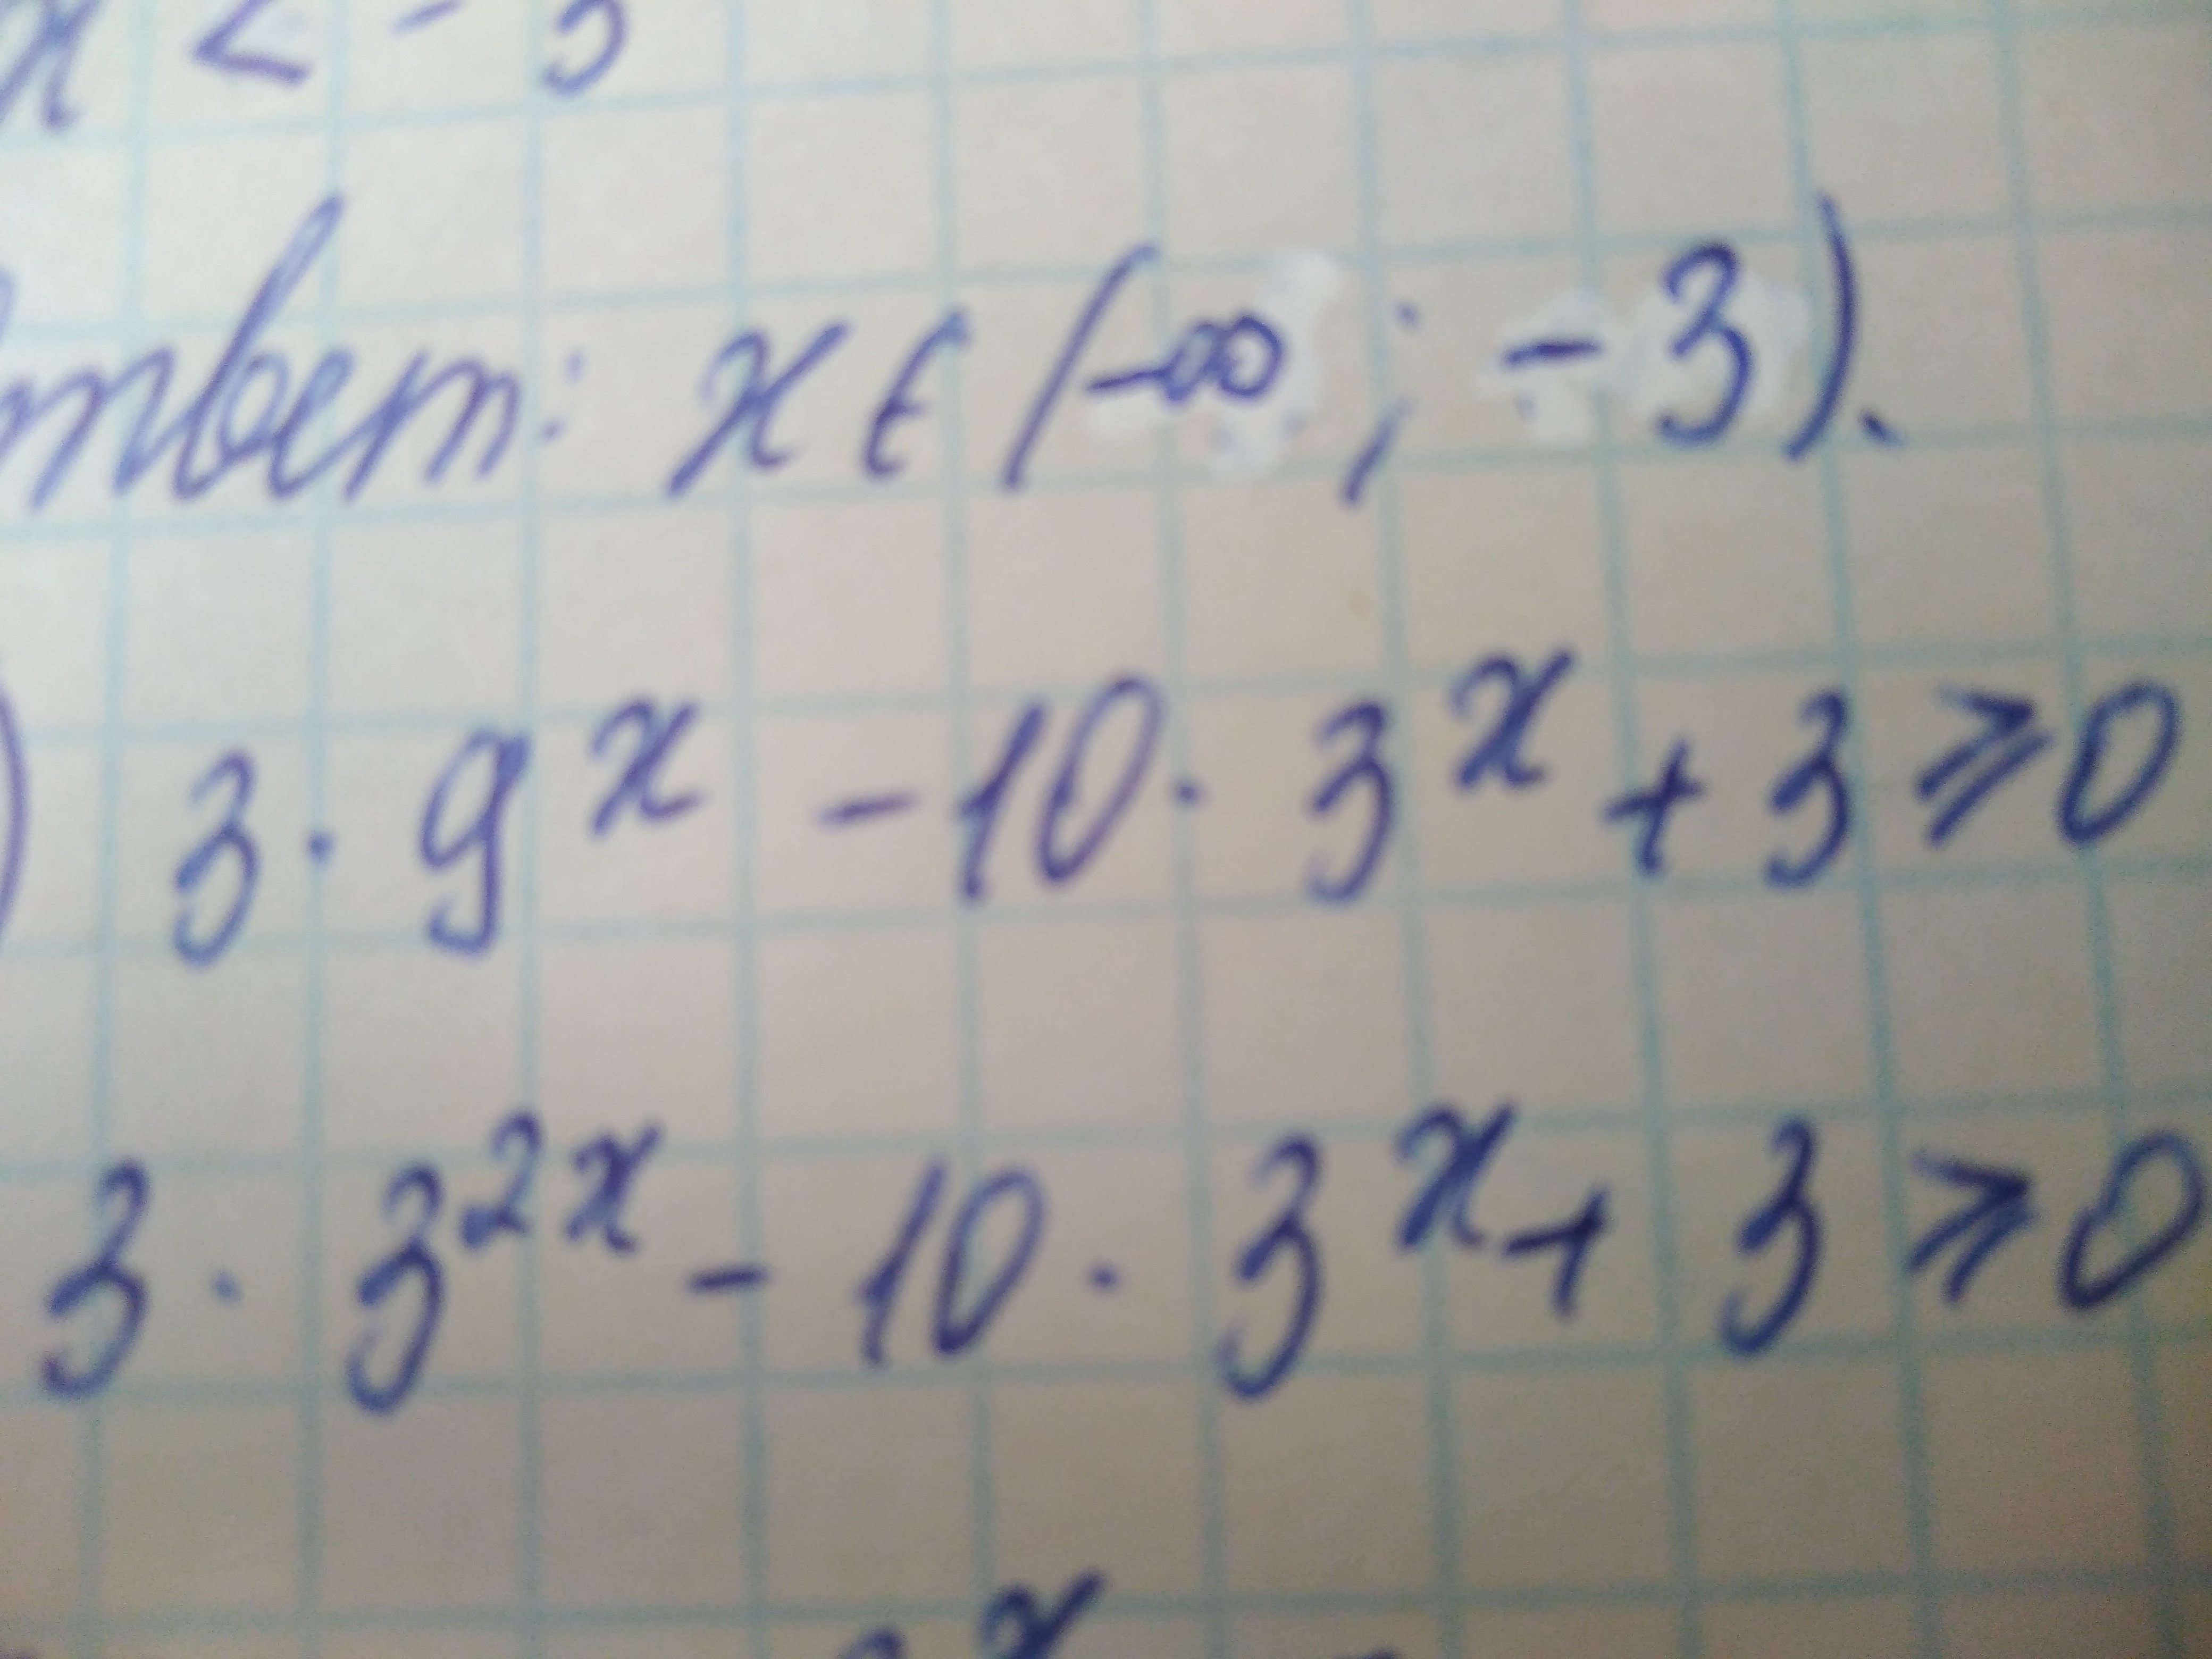 x < -3
Ответ: x ∈ (-∞; -3).
) 3 · 9^x - 10 · 3^x + 3 ⩾ 0
3 · 3^{2x} - 10 · 3^x + 3 ⩾ 0